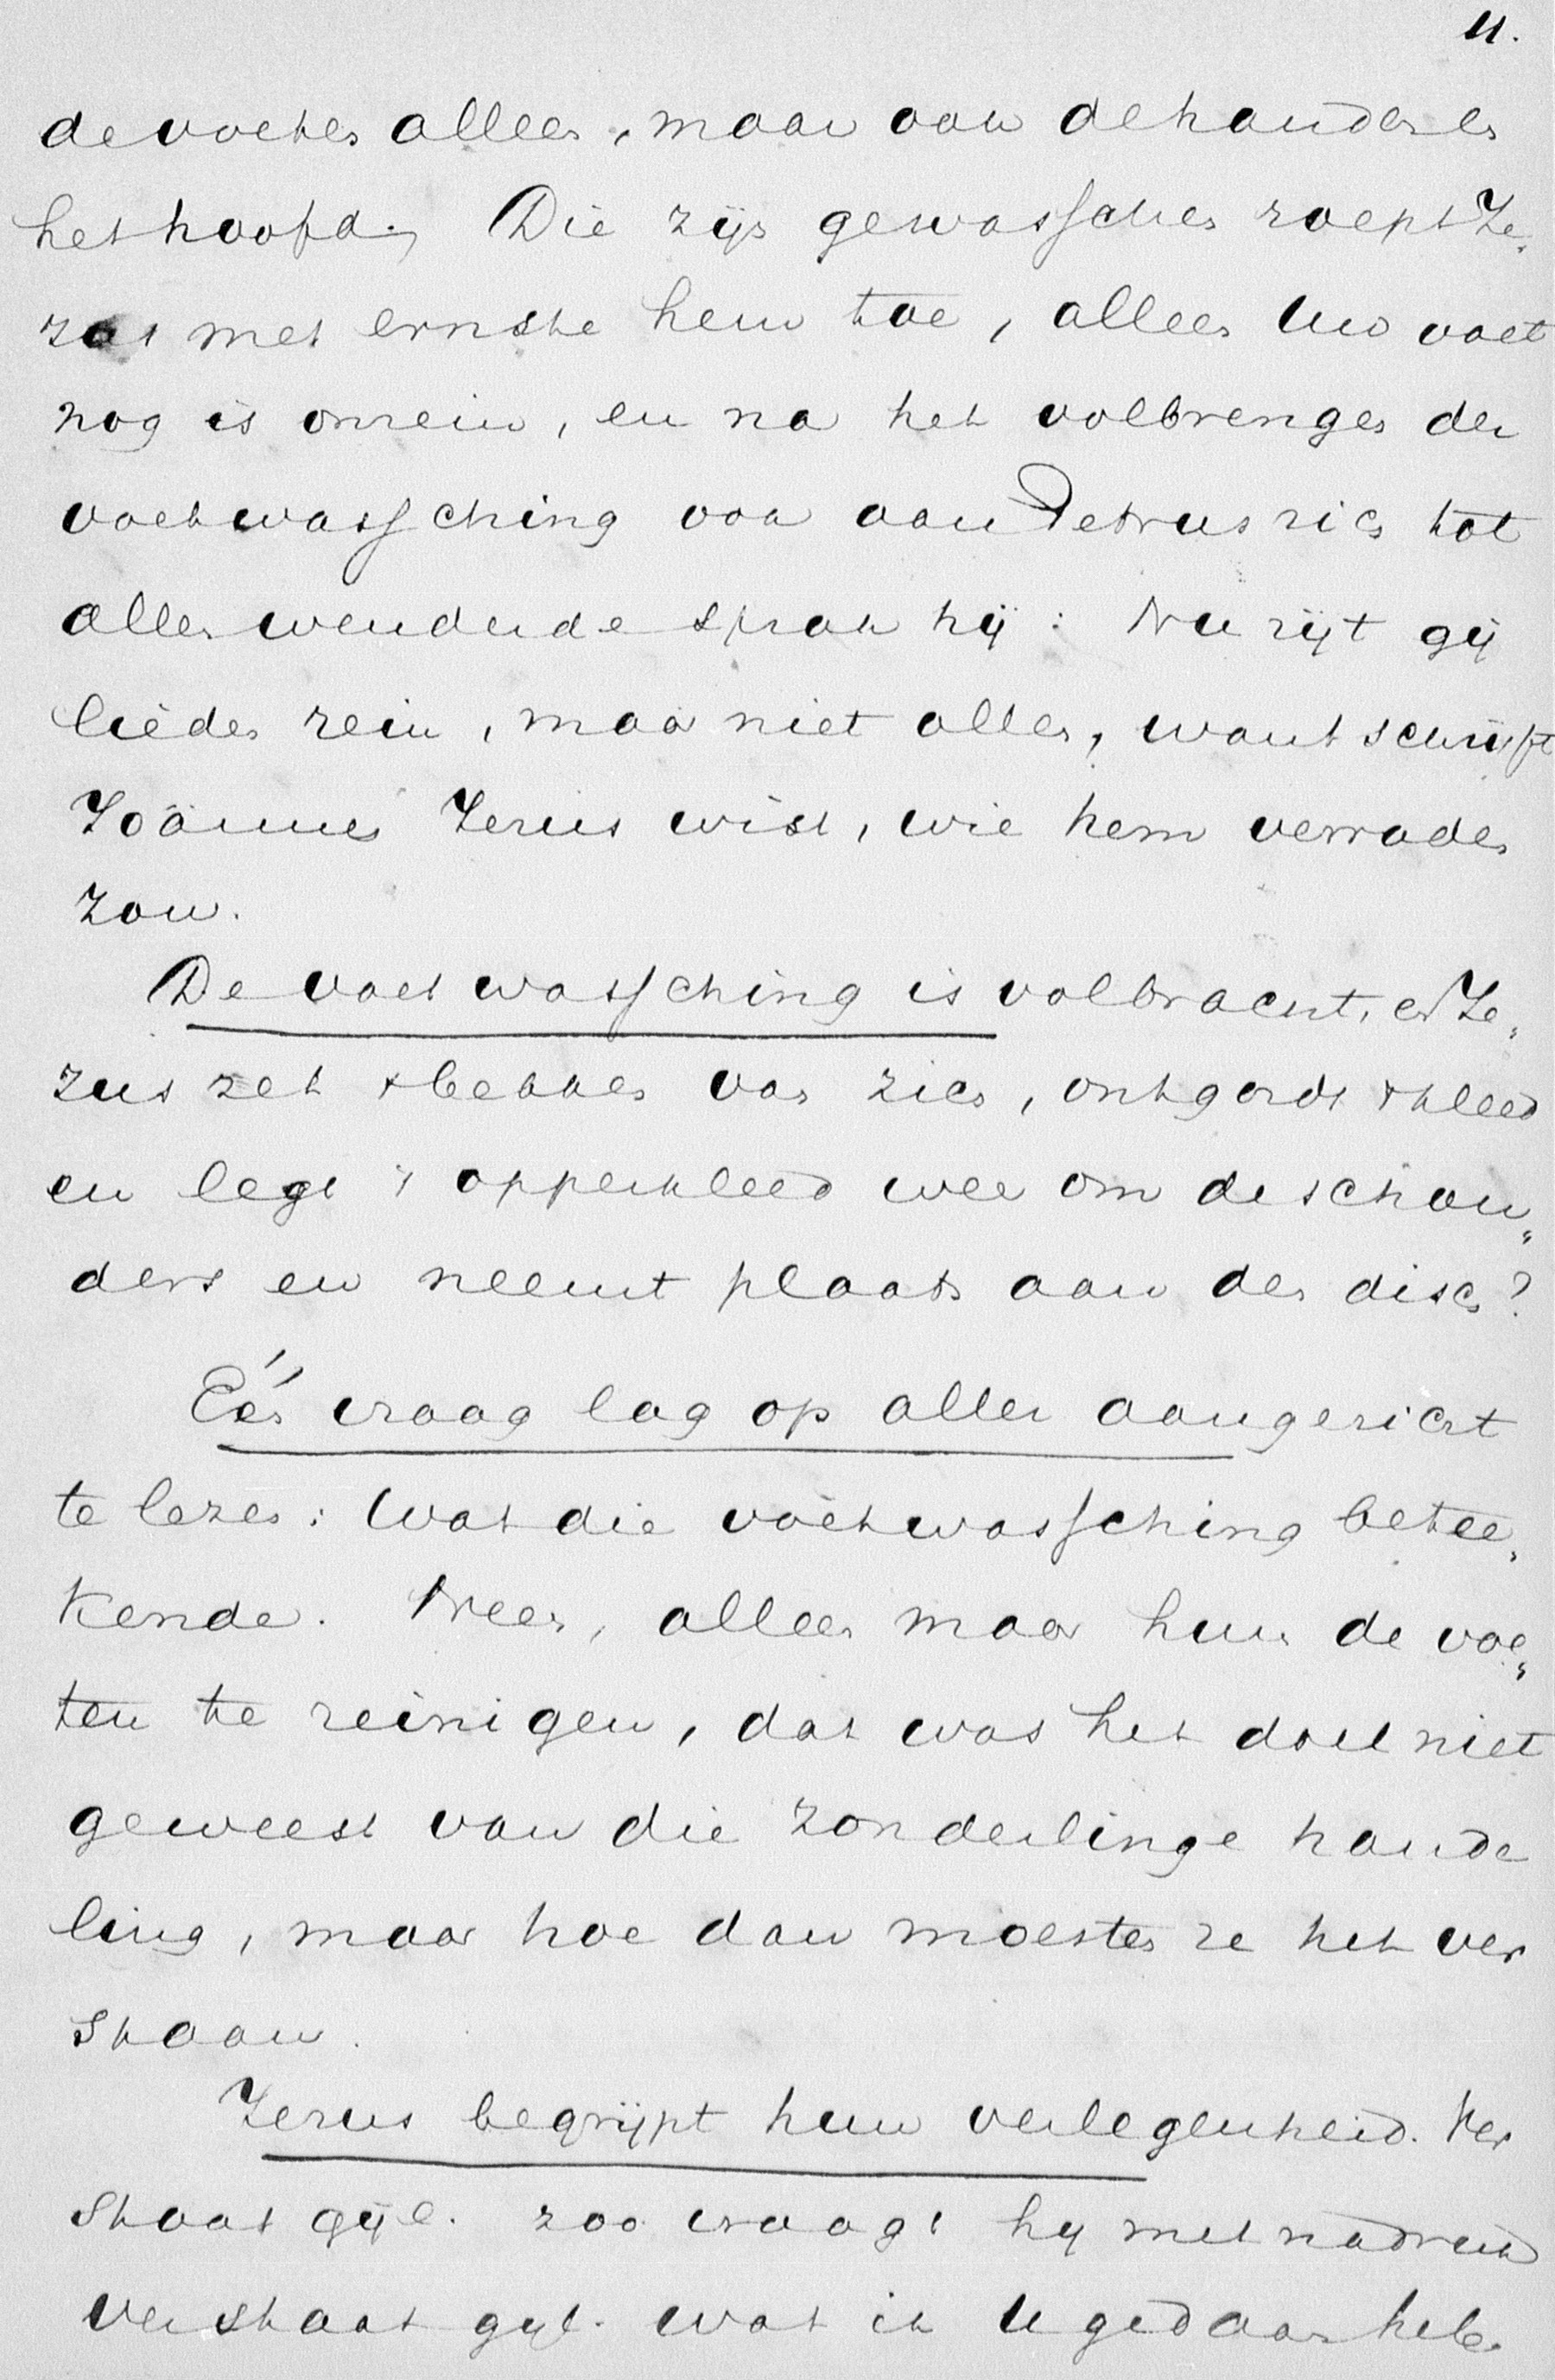 11.
de voeten alleen, maar ook de handen en
het hoofd. Die zijn gewasschen roept Je„
zus met ernste hem toe, alleen Uw voet
nog is onrein, en na het volbrengen der
voetwassching ook aan Petrus zich tot
allen wendende sprak hij: Nu zijt gij
lieden rein, maar niet allen, want schrijft
Joännes Jezus wist, wie hem verraden
zou.
De voetwassching is volbracht, en Je„
zus zet 't bekken van zich, ontgordt 't kleed
en legt 't opperkleed weer om de schou„
ders en neemt plaats aan den disch?
Eén vraag lag op aller aangezicht
te lezen: Wat die voetwassching betee„
kende. Neen, alleen maar hun de voe„
ten te reinigen, dat was het doel niet
geweest van die zonderlinge hande
ling, maar hoe dan moesten ze het ver
staan.
Jezus begrijpt hun verlegenheid. Ver
staat gijl. zoo vraagt hij met nadruk
verstaat gijl. wat ik U gedaan heb.